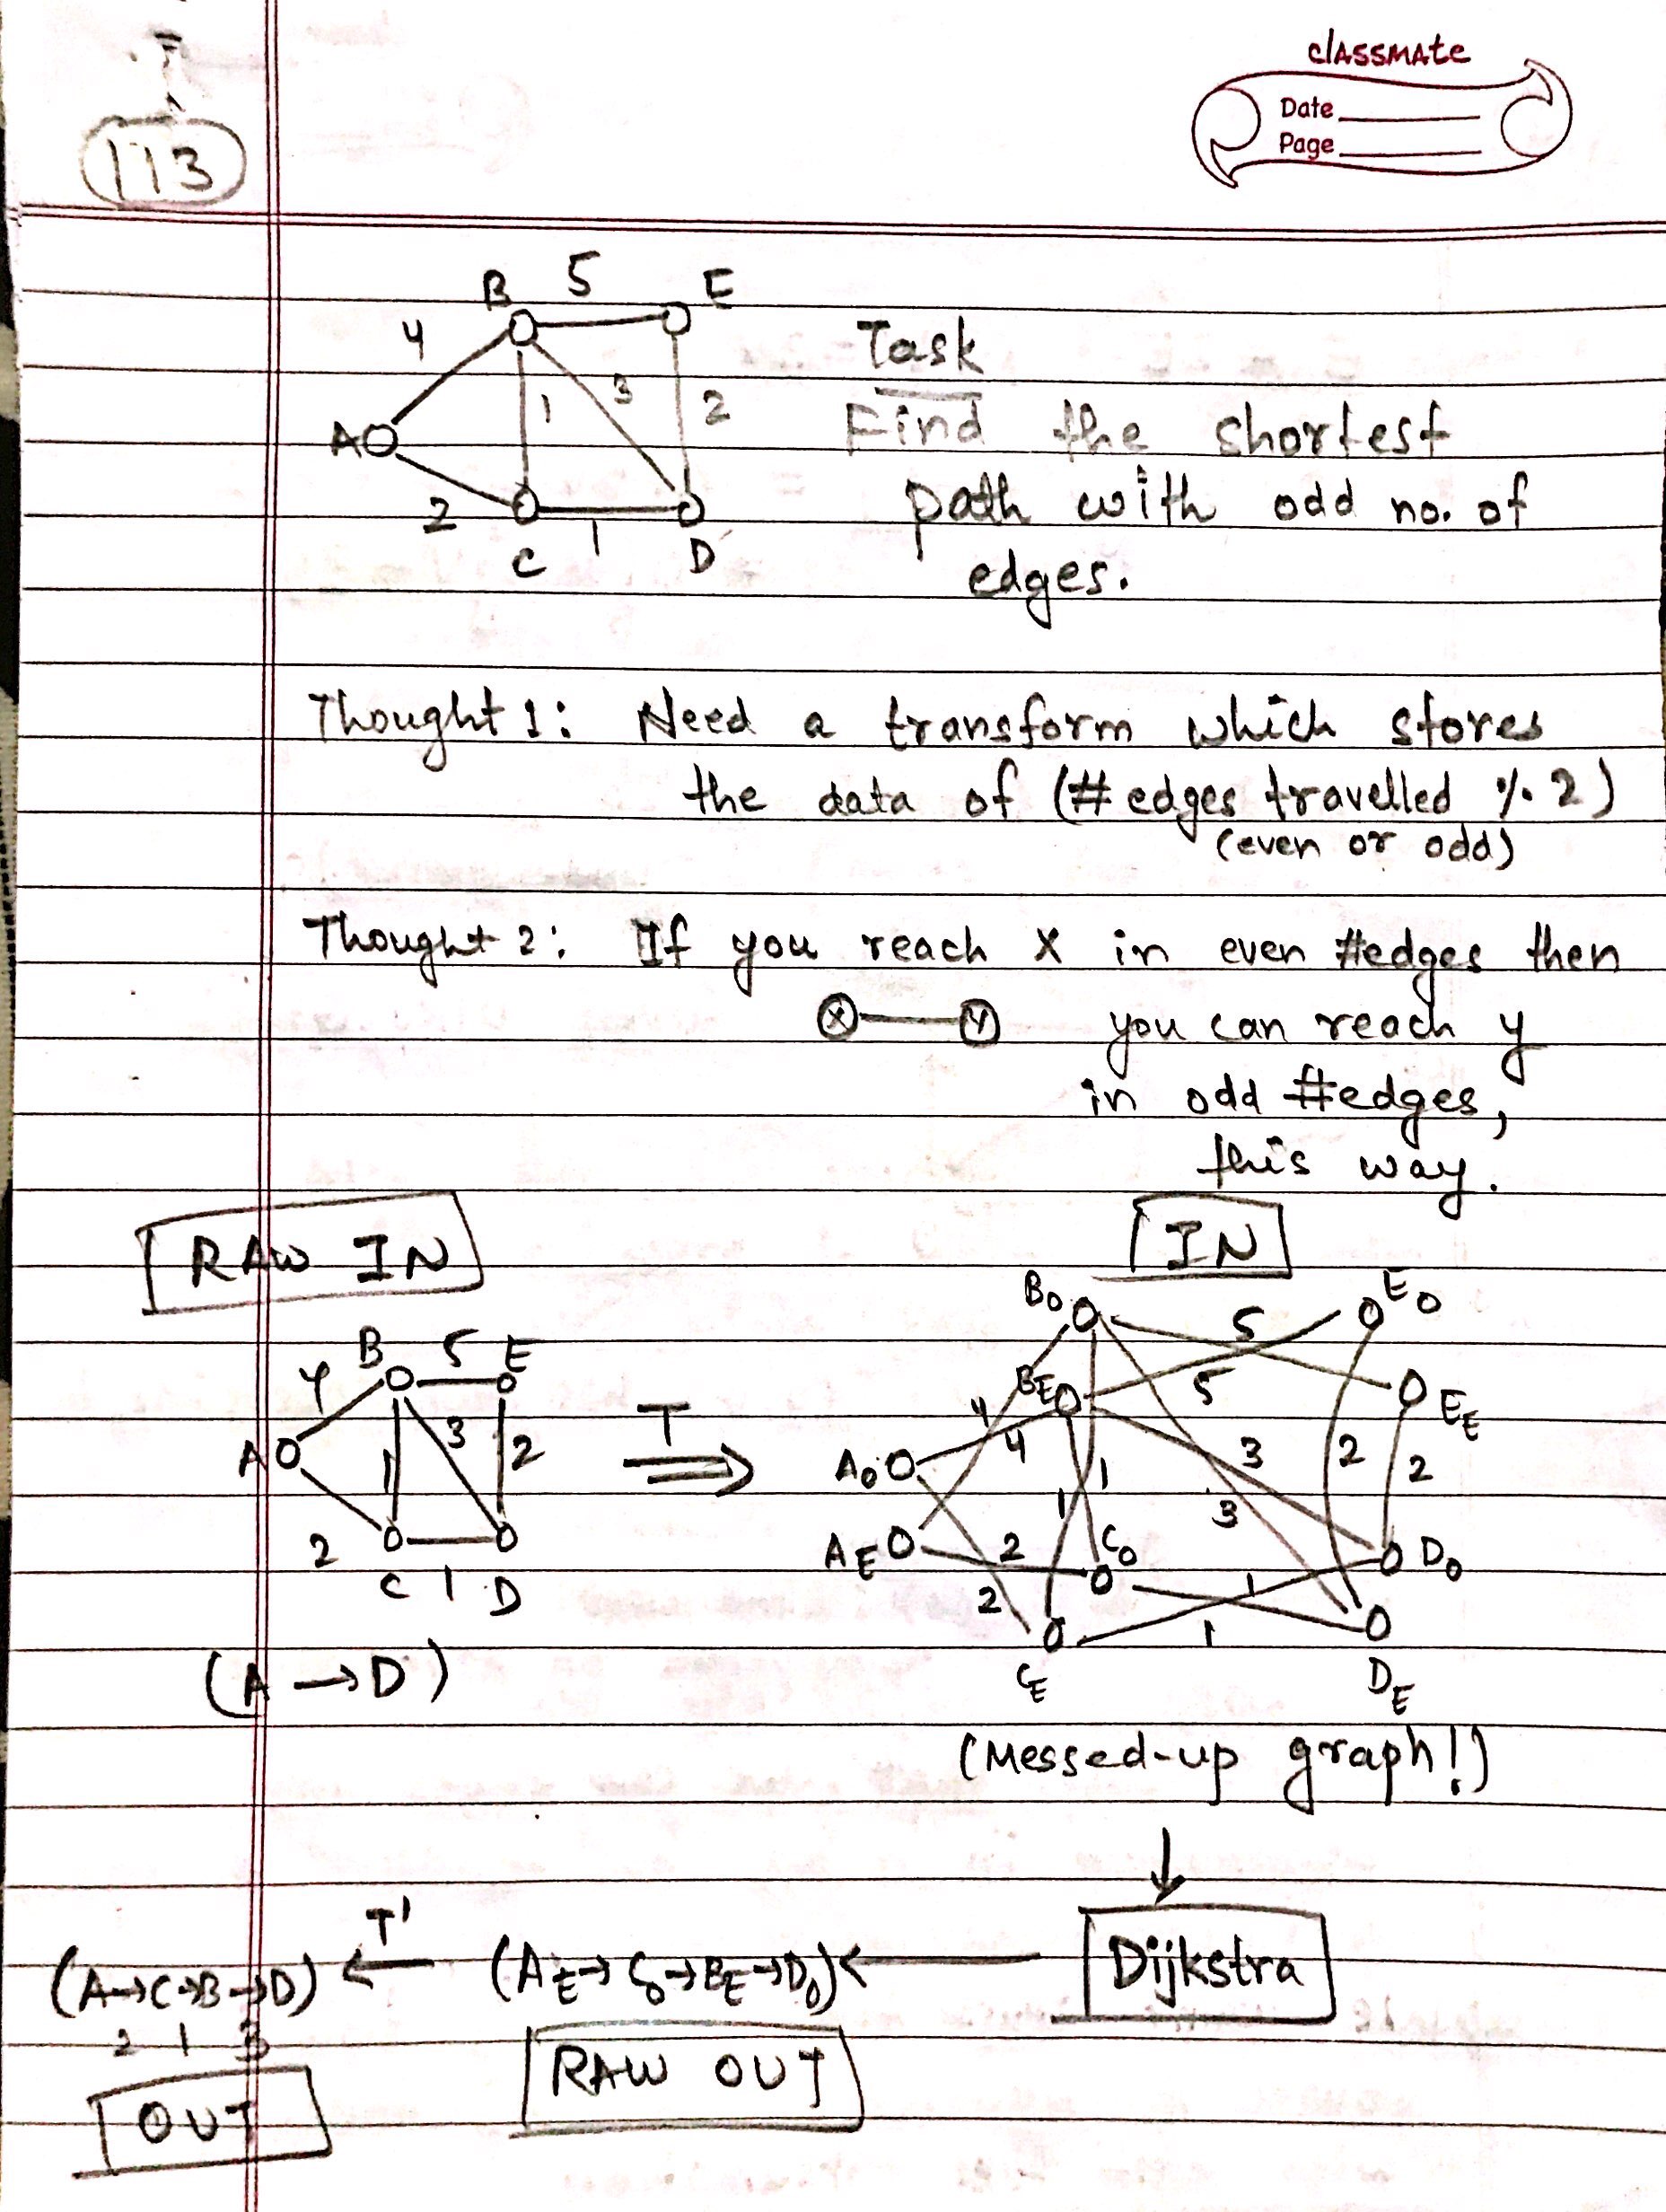 classmate
Date
Page
113
B 5 E
4
1 3 2
A
2
C 1 D
Task
Find the shortest
path with odd no. of
edges.
Thought 1: Need a transform which stores
the data of (# edges travelled % 2)
(even or odd)
Thought 2: If you reach X in even #edges then
X Y you can reach y
in odd #edges,
this way.
RAW IN
IN
B 5 E
4
3
A 1 2
2
C 1 D
(A → D)
T
B0 5 E0
BE 5 EE
4
4 3 2 2
A0 1
1 3
AE 2 C0 D0
2 1
1
CE DE
(Messed-up graph!)
Dijkstra
(AE→C0→BE→D0)
RAW OUT
T'
(A→C→B→D)
2 1 3
OUT